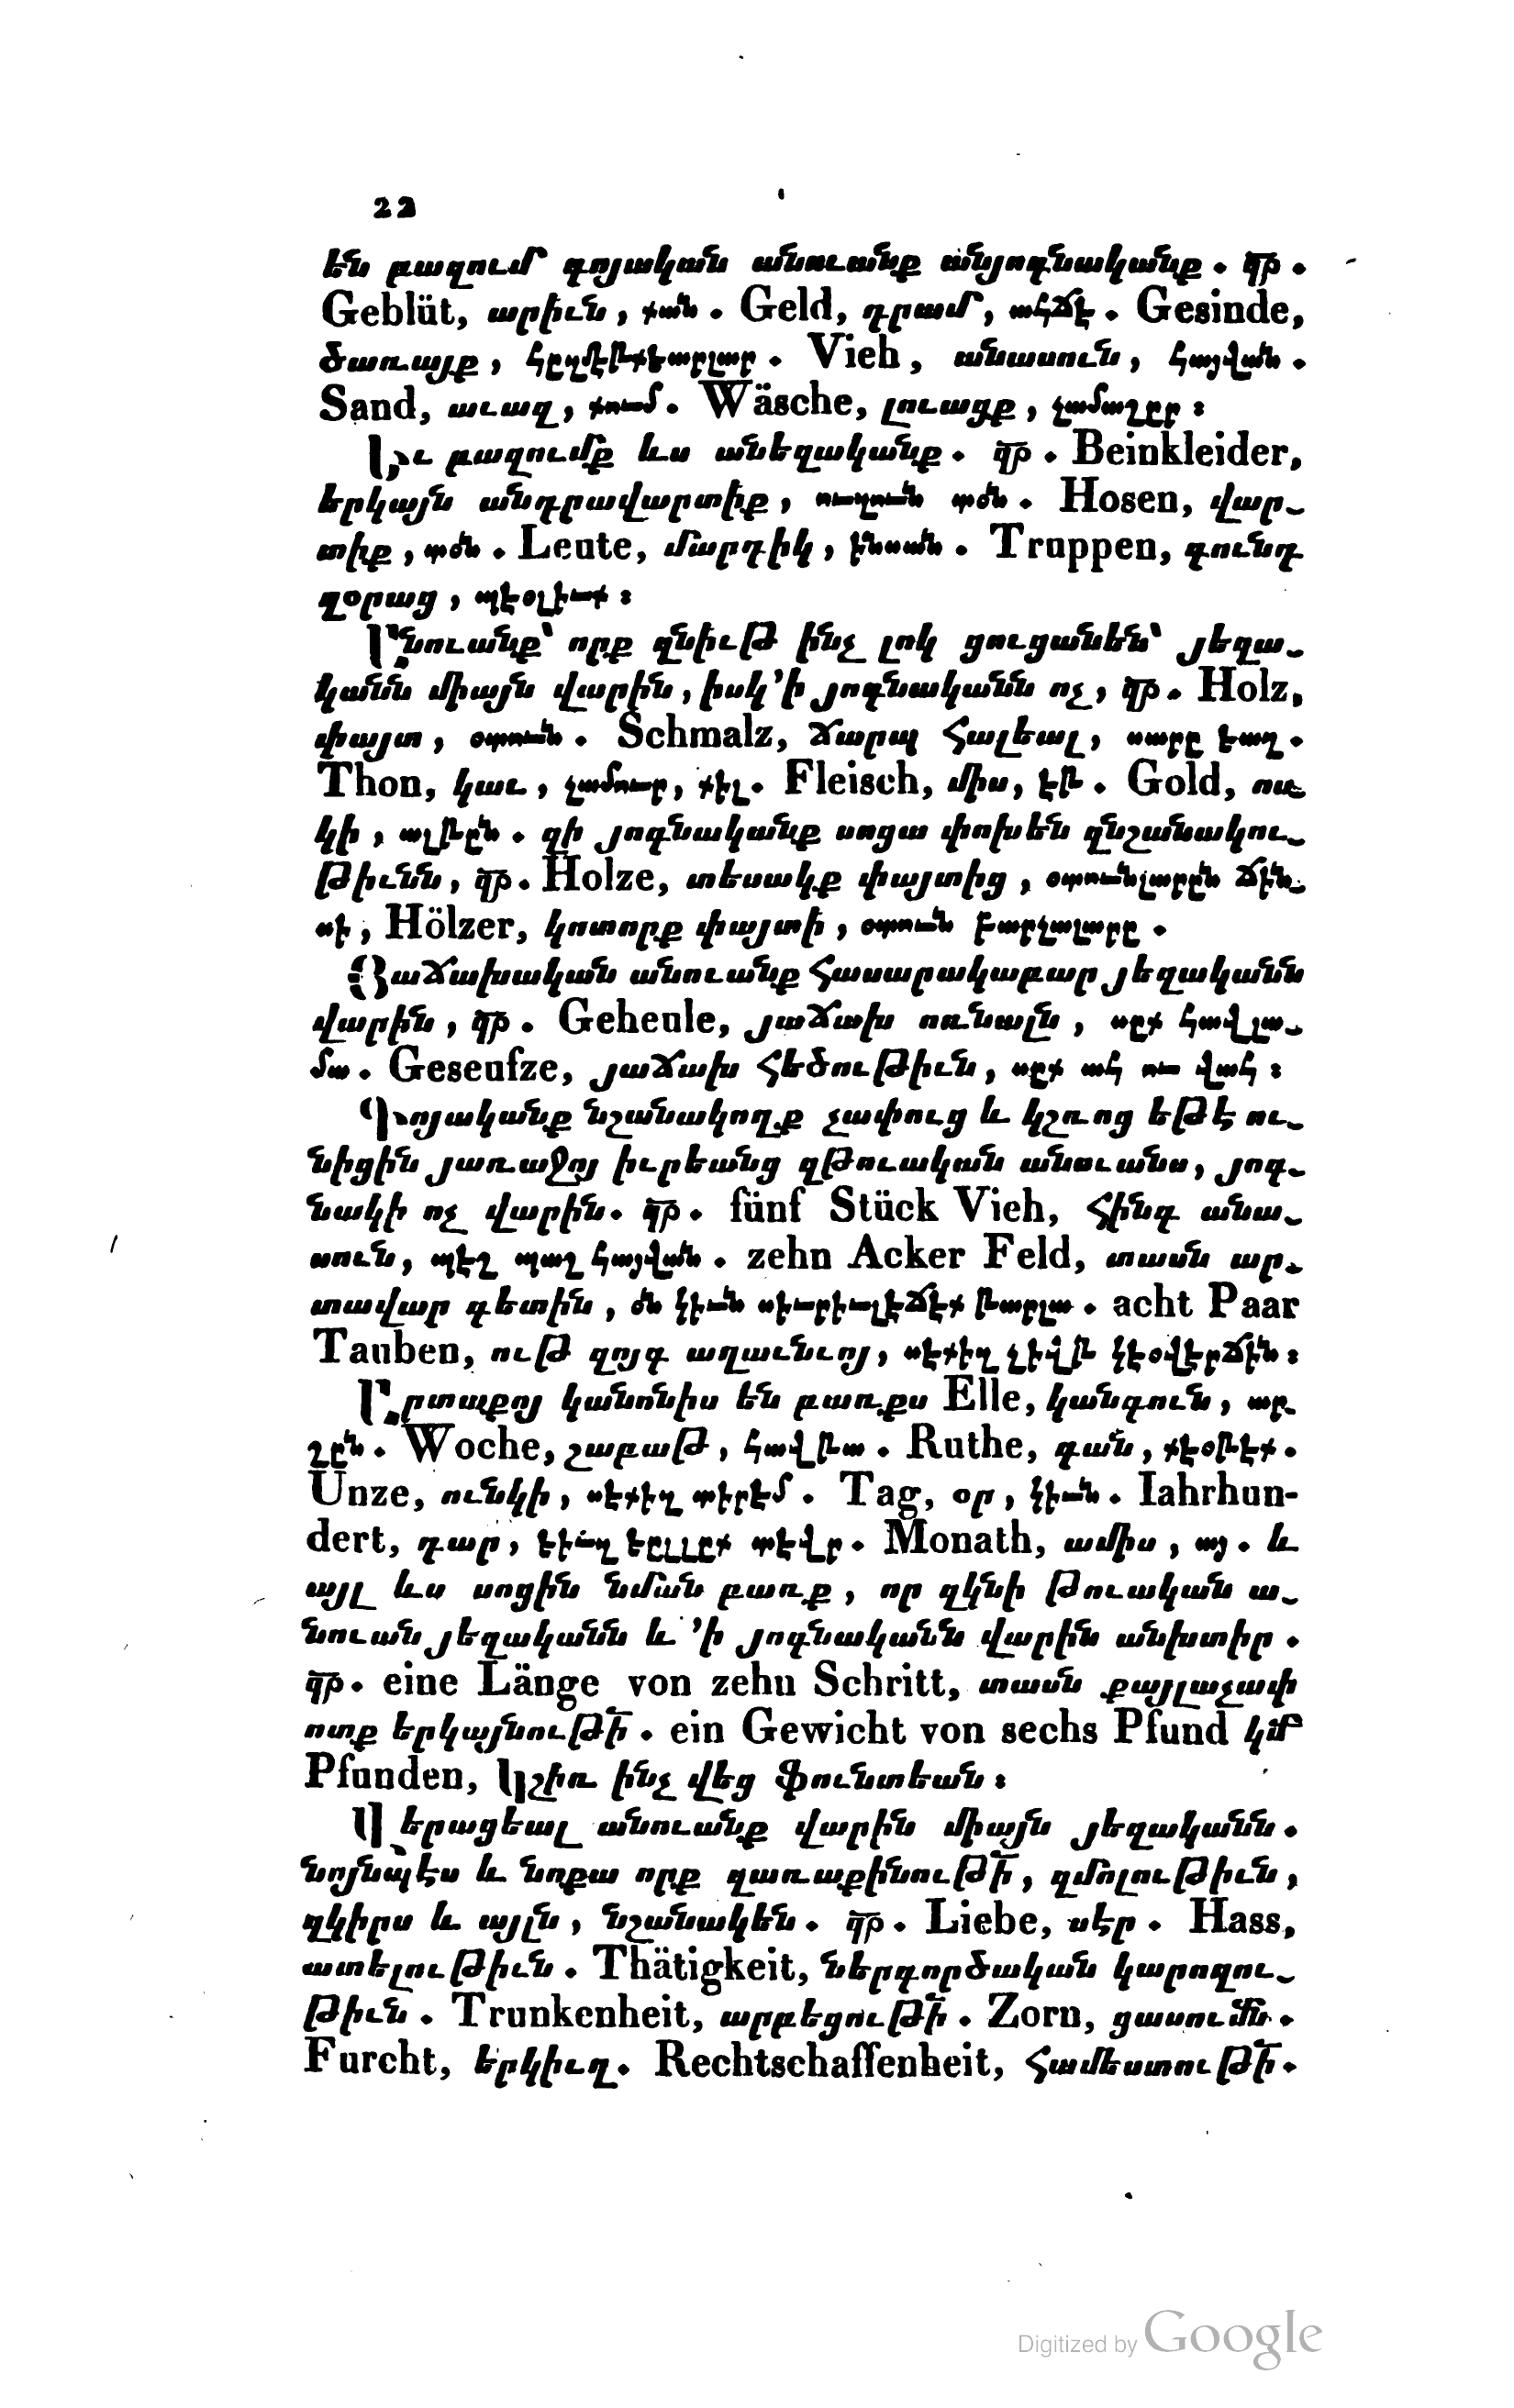 22
են բազում գոյական անուանք անյոգնականք. զր.
Geblüt, արիւն, քան. Geld, դրամ, ահճէ. Gesinde,
ծառայք, հըզմէթքեարլար. Vieh, անասուն, հայվան.
Sand, աւազ, քում. Wäsche, լուացք, չամաշըր։
Եւ բազումք ևս անեզականք. զր. Beinkleider,
երկայն անդրավարտիք, ուզուն տօն. Hosen, վար-
տիք, տօն. Leute, մարդիկ, ինսան. Truppen, գունդ
զօրաց, պէօլիւք։
Անուանք՝ որք զնիւթ ինչ լոկ ցուցանեն՝ յեզա-
կանն միայն վարին, իսկ ՚ի յոգնականն ոչ, զր. Holz,
փայտ, օտուն. Schmalz, ճարպ հալեալ, սարը եաղ.
Thon, կաւ, չամուր, քիլ. Fleisch, միս, էթ. Gold, ոս-
կի, ալթըն. զի յոգնականք սոցա փոխեն զնշանակու-
թիւնն, զր. Holze, տեսակք փայտից, օտունլարըն ճին-
սի, Hölzer, կոտորք փայտի, օտուն բարչալարը.
Յաճախական անուանք հասարակաբար յեզականն
վարին, զր. Geheule, յաճախ ոռնալն, սըք հավլա-
մա. Geseufze, յաճախ հեծութիւն, սըք ահ ու վահ։
Գոյականք նշանակողք չափուց և կշռոց եթէ ու-
նիցին յառաջոյ իւրեանց զթուական անուանս, յոգ-
նակի ոչ վարին. զր. fünf Stück Vieh, հինգ անա-
սուն, պէշ պաշ հայվան. zehn Acker Feld, տասն ար-
տավար գետին, օն կիւն սիւրիւլէճէք թարլա. acht Paar
Tauben, ութ զոյգ աղաւնւոյ, սէքիզ չիվթ կէօվէրճին։
Արտաքոյ կանոնիս են բառքս Elle, կանգուն, ար-
շըն. Woche, շաբաթ, հավթա. Ruthe, գան, քէօթէք.
Unze, ունկի, սէքիզ տիրէմ. Tag, օր, կիւն. Iahrhun-
dert, դար, եիւզ եըլլըք տէվր. Monath, ամիս, այ. և
այլ ևս սոցին նման բառք, որ զկնի թուական ա-
նուան յեզականն և ՚ի յոգնականն վարին անխտիր.
զր. eine Länge von zehn Schritt, տասն քայլաչափ
ոտք երկայնութի՛. ein Gewicht von sechs Pfund կմ՛
Pfunden, կշիռ ինչ վեց ֆունտեան։
Վերացեալ անուանք վարին միայն յեզականն.
նոյնպէս և նոքա որք զառաքինութի՛, զմոլութիւն,
զկիրս և այլն, նշանակեն. զր. Liebe, սէր. Hass,
ատելութիւն. Thätigkeit, ներգործական կարողու-
թիւն. Trunkenheit, արբեցութի՛. Zorn, ցասումն.
Furcht, երկիւղ. Rechtschaffenheit, համեստութի՛.
Digitized by Google